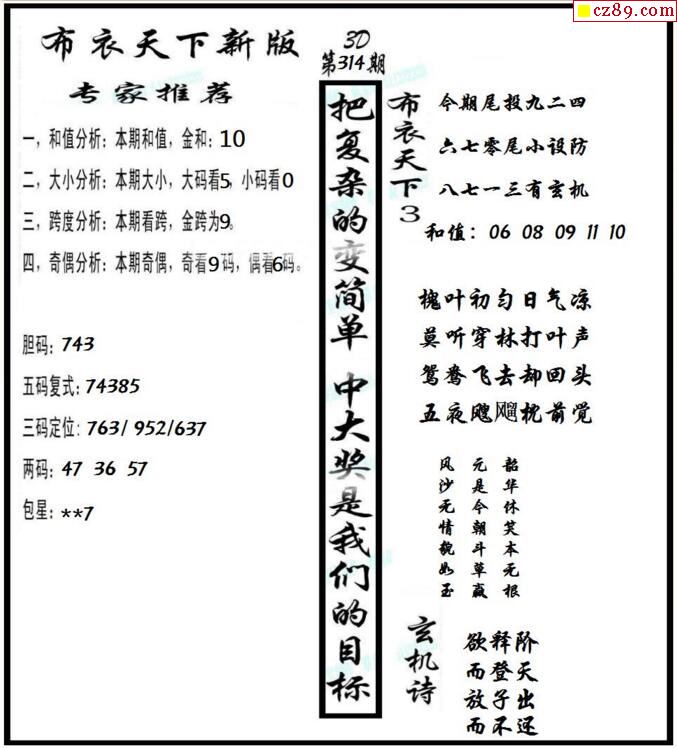 cz89.com
布衣天下新版
专家推荐
一，和值分析：本期和值，金和：10
二，大小分析：本期大小，大码看5，小码看0
三，跨度分析：本期看跨，金跨为9。
四，奇偶分析：本期奇偶，奇看9码，偶看6码。
胆码：743
五码复式：74385
三码定位：763/ 952/637
两码：47 36 57
包星：**7
3D
第314期
把复杂的变简单 中大奖是我们的目标
布衣天下3
今期尾投九二四
六七零尾小设防
八七一三有玄机
和值：06 08 09 11 10
槐叶初匀日气凉
莫听穿林打叶声
鸳鸯飞去却回头
五夜飕飗枕前觉
风 元 韶
沙 是 华
无 今 休
情 朝 笑
貌 斗 本
如 草 无
玉 赢 根
玄机诗
欲释阶
而登天
放子出
而不还